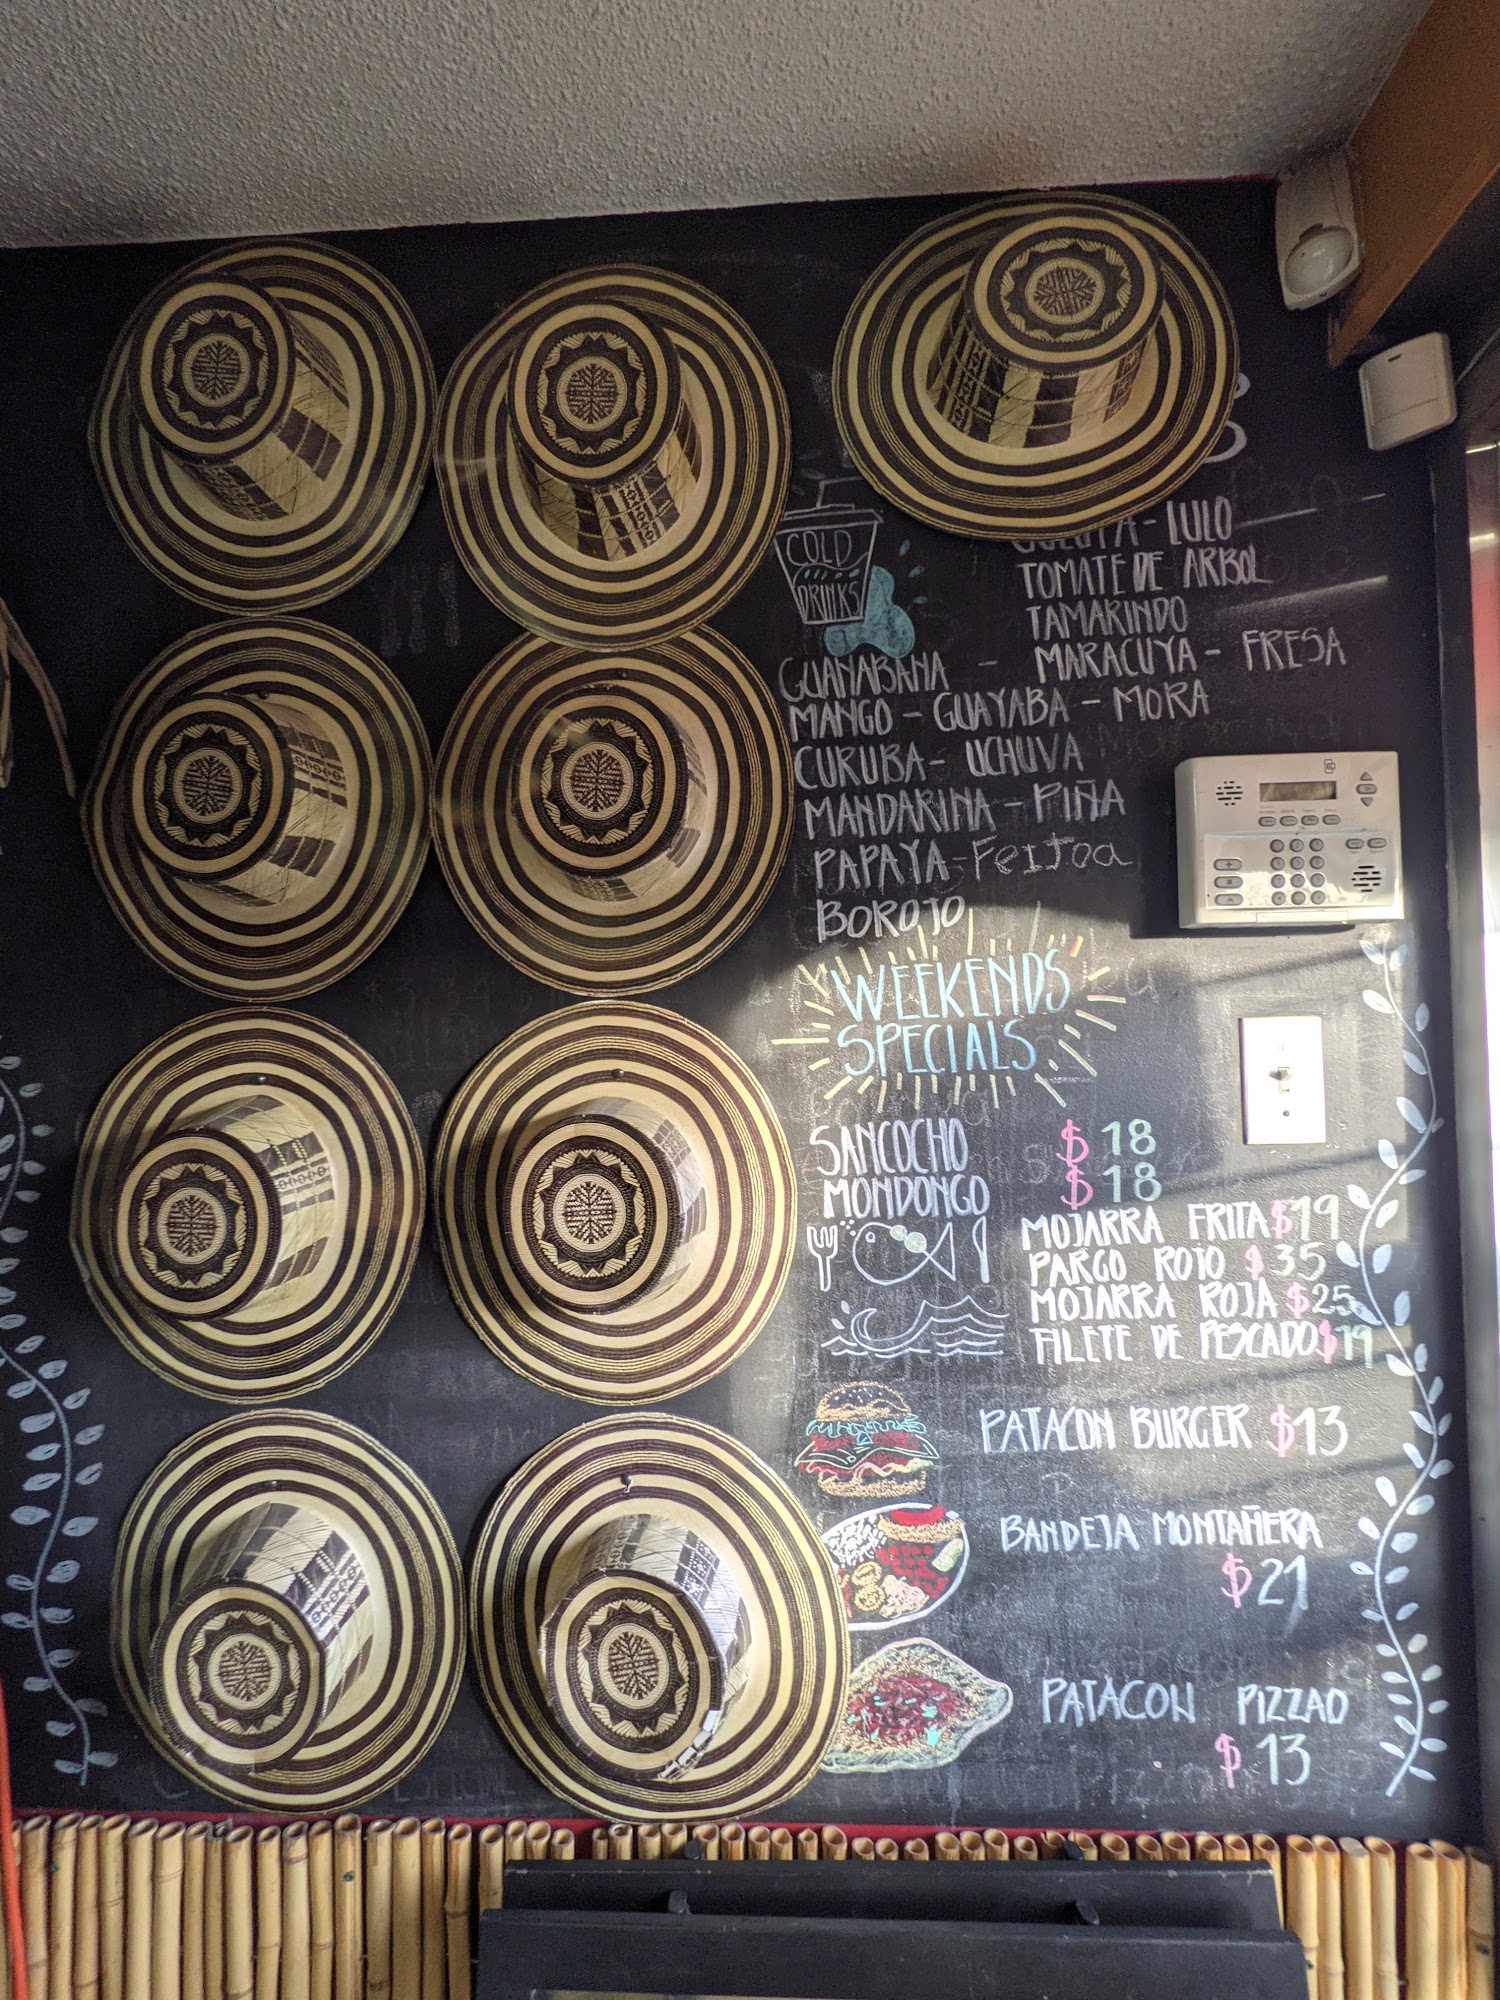 LULO
COLD
DRINKS
TOMATE DE ARBOL
TAMARINDO
GUANABANA - MARACUYA - FRESA
MANGO - GUAYABA - MORA
CURUBA - UCHUVA
MANDARINA - PIÑA
PAPAYA - Feijoa
BOROJO
WEEKENDS
SPECIALS
SANCOCHO $18
MONDONGO $18
MOJARRA FRITA $19
PARGO ROJO $35
MOJARRA ROJA $25
FILETE DE PESCADO $19
PATACON BURGER $13
BANDEJA MONTAÑERA
$21
PATACON PIZZAO
$13